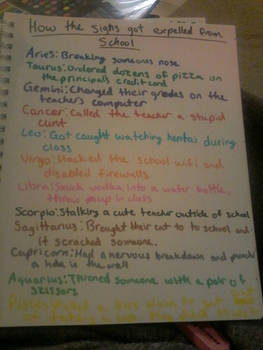 How the signs got expelled from
School
Aries: Breaking someons nose
Taurus: Ordered dozens of pizza on
the principals creditcard
Gemini: Changed their grades on the
teachers computer
Cancer: Called the teacher a stupid
cunt
Leo: Got caught watching hentai during
class
Virgo: Hacked the school wifi and
disabled firewalls
Libra: Snuck vodka into a water bottle,
threw up in class
Scorpio: Stalking a cute teacher outside of school
Sagittarius: Brought their cat to to school and
it scrached someone.
Capricorn: Had a nervous breakdown and punch
a hole in the wall
Aquarius: Throned someone with a pair of
scissors